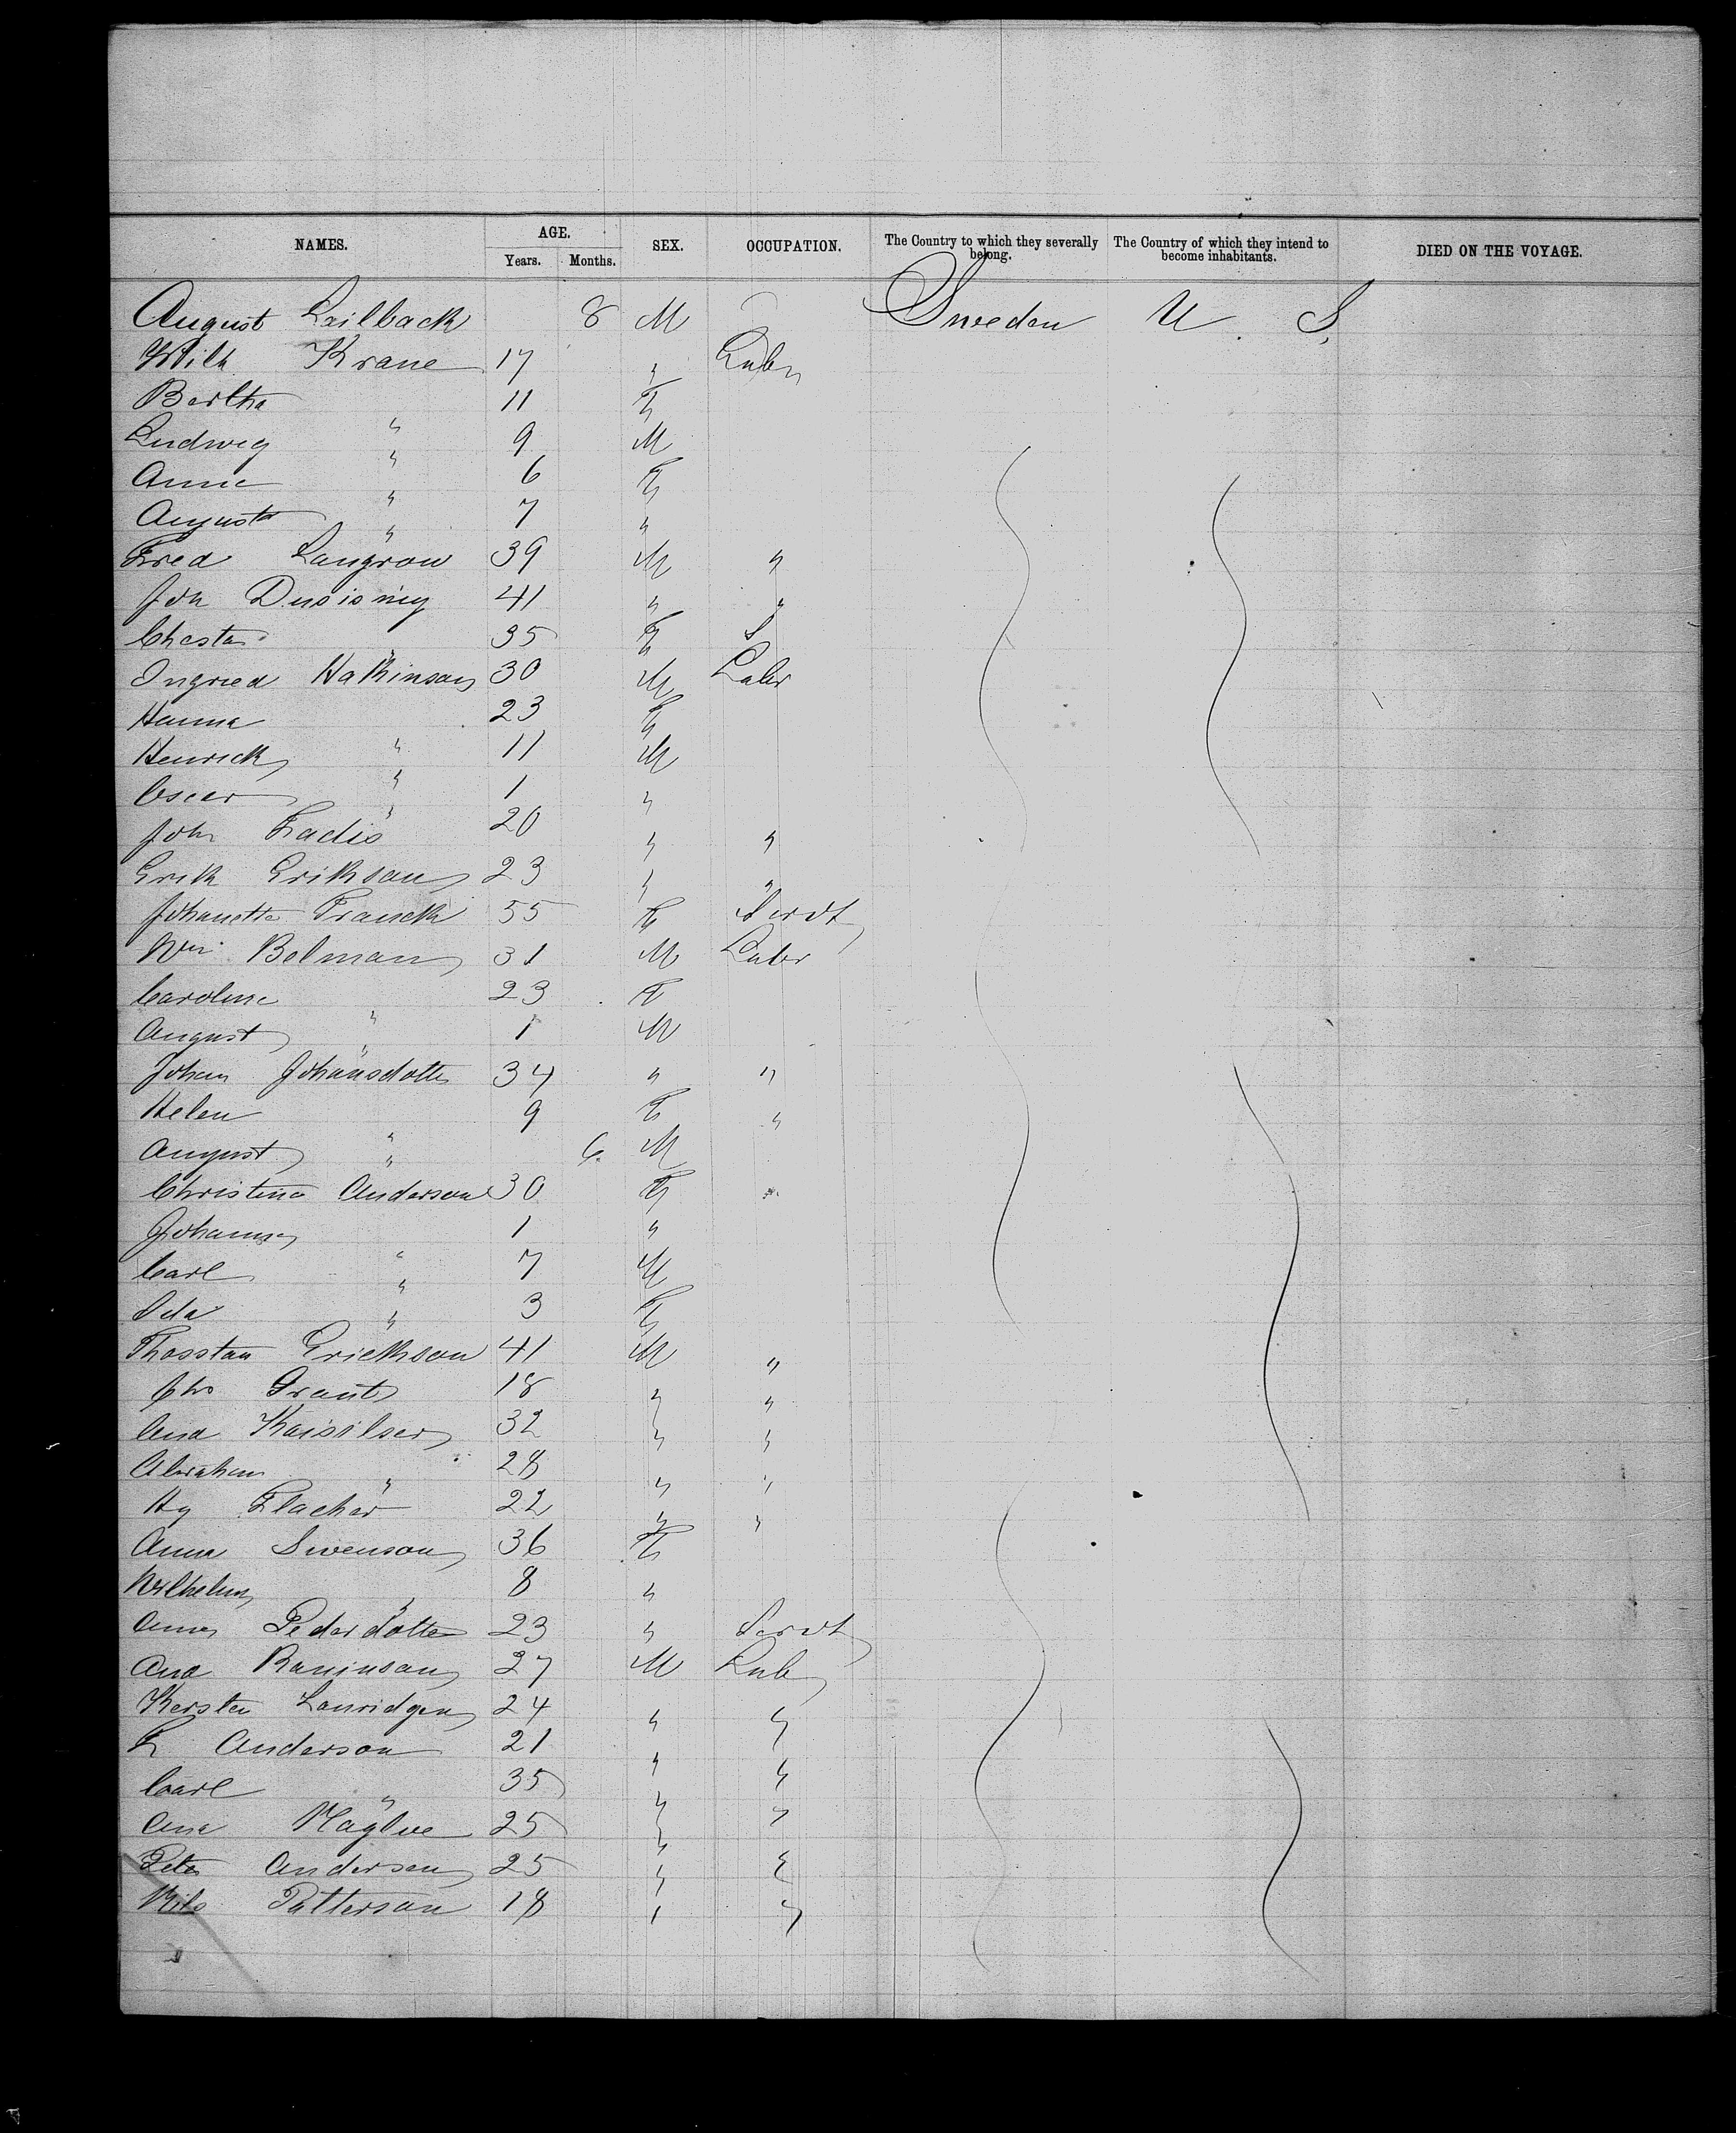 NAMES. AGE. SEX. OCCUPATION. The Country to which they severally belong. The Country of which they intend to become inhabitants. DIED ON THE VOYAGE.
Years. Months.
August Lailback 8 M Sweden U. S.
Wilh. Krane 17 " Labr
Bertha " 11 F
Ludwig " 9 M
Anne " 6 F
August " 7 "
Fred Langrow 39 M "
Joh 41 " "
35 F S
Ingried Hakinson 30 M Labr
Hanna " 23 F
Henrick " 11 M
Oscar " 1 "
John 20 " "
Erik Erikson 23 " "
Johanetta Franck 55 F Servt
Wm Bolman 31 M Labr
Caroline " 23 F
August " 1 M
Johan Johansdotter 34 " "
Helen " 9 F "
August " 6 M
Christina Anderson 30 F "
Johanna " 1 "
Carl " 7 M
Ida " 3 F
Thosstan Erickson 41 M "
Grant 18 " "
32 " "
Abraham " 28 " "
Hy Flacher 22 " "
Anna Swenson 36 F
Wilhelm " 8 "
Anna Pedardotter 23 " Servt
And Raninson 27 M Lab
Kersten Lauridgen 24 " "
L Anderson 21 " "
Carl " 35 " "
25 " "
Peter Andersen 25 " "
Nils Patterson 18 " "